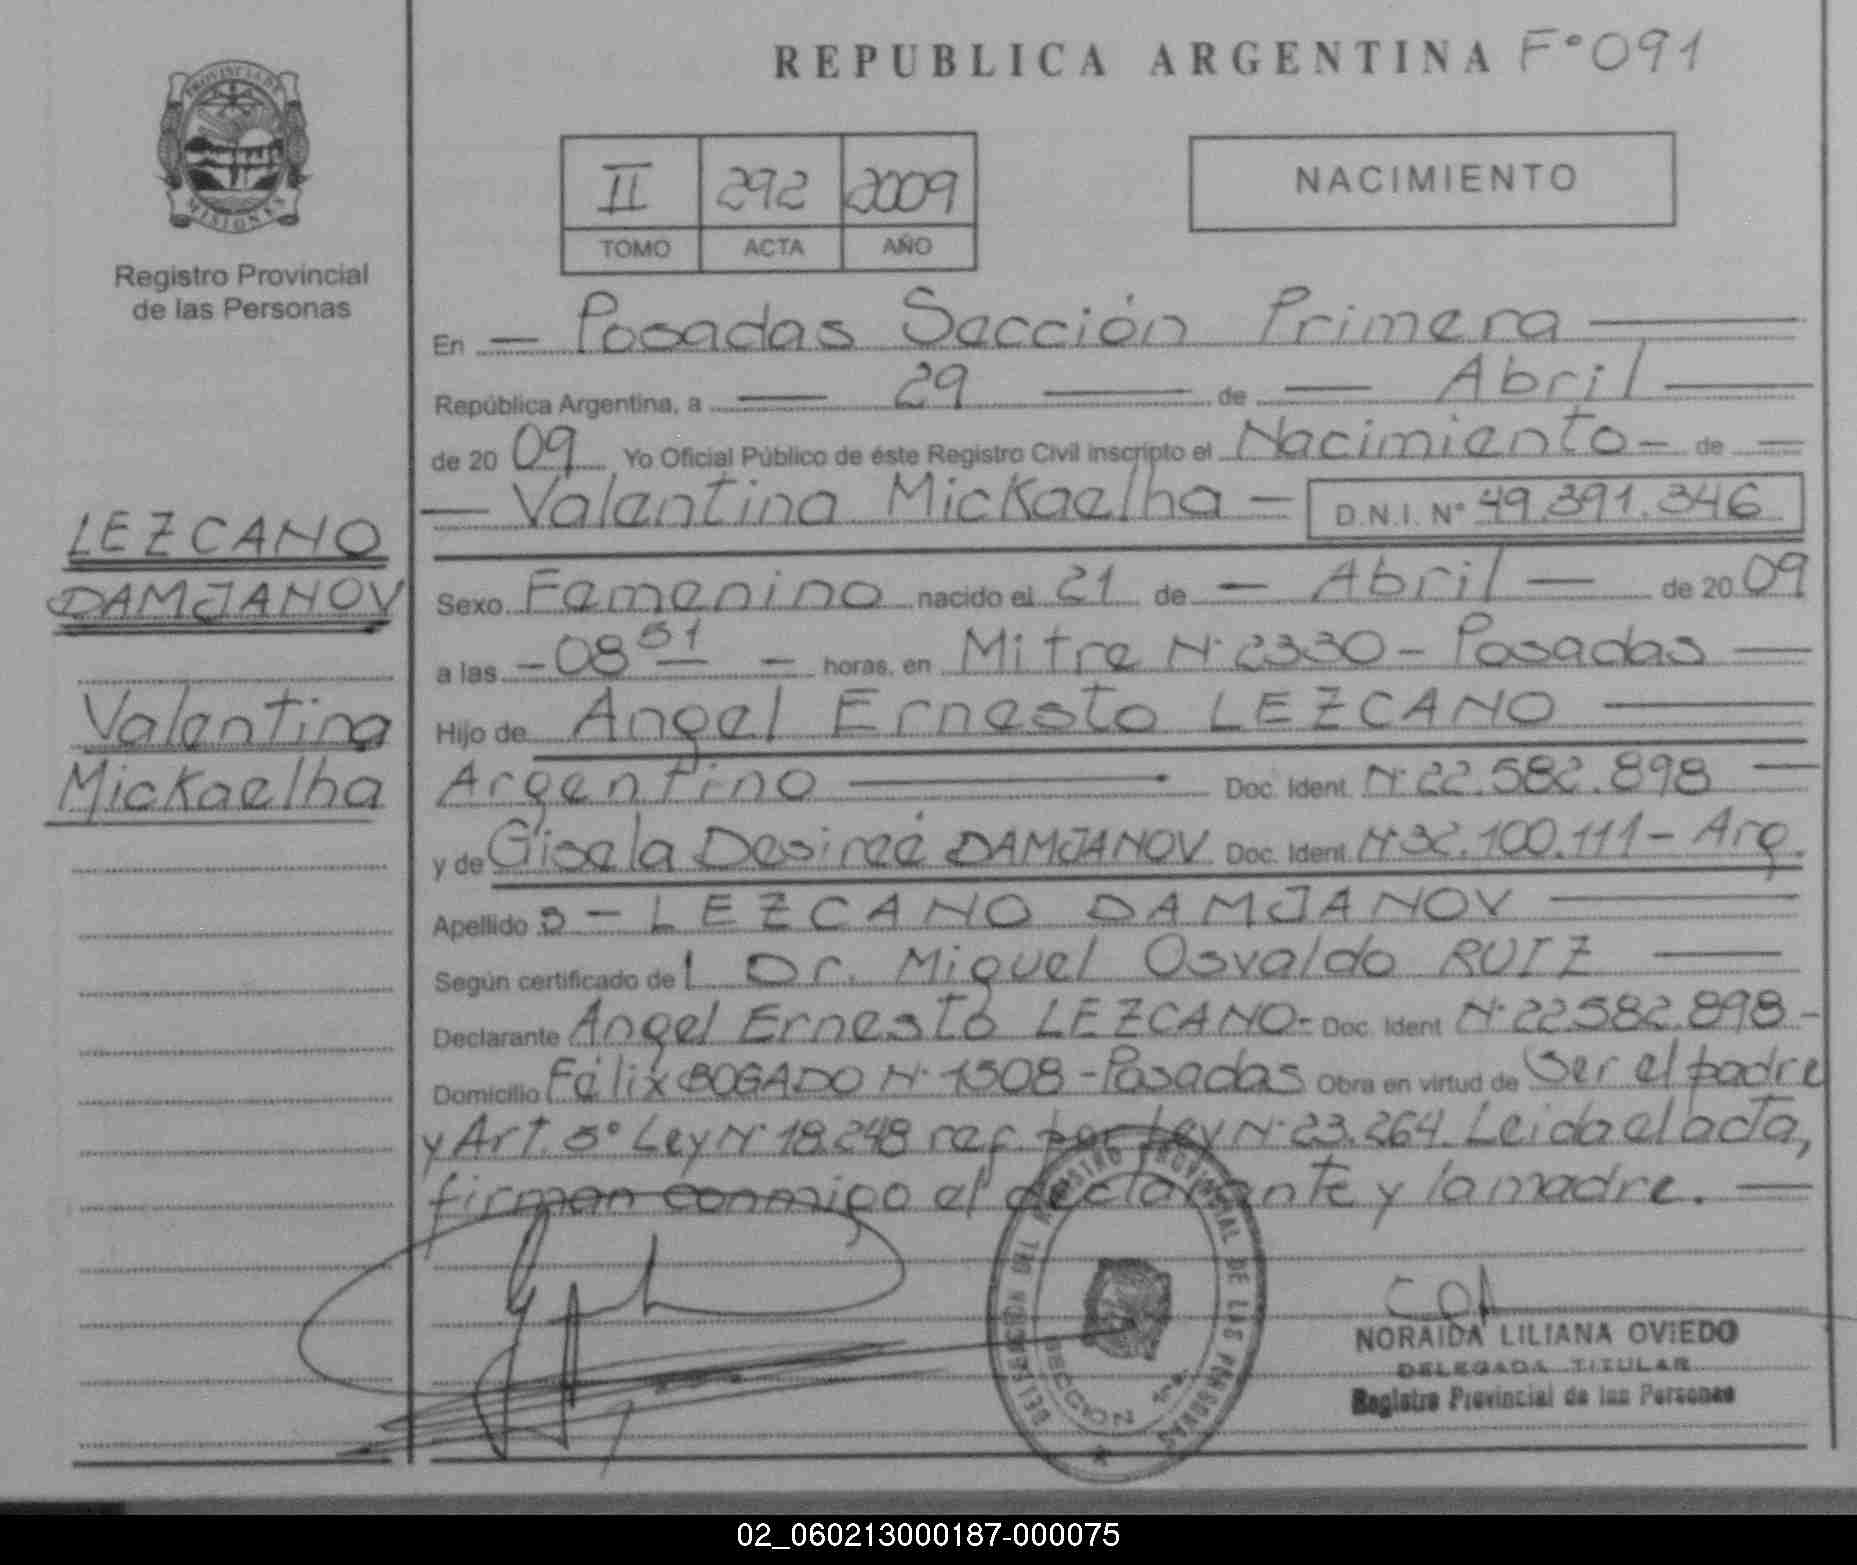 REPUBLICA ARGENTINA F° 091
PROVINCIA DE
MISIONES
Registro Provincial
de las Personas
II 292 2009
TOMO ACTA AÑO
NACIMIENTO
En — Posadas Sección Primera —
República Argentina, a — 29 — de — Abril —
de 20 09 Yo Oficial Público de éste Registro Civil inscripto el Nacimiento - de —
— Valentina Mickaelha — D.N.I. N° 49.391.346
LEZCANO
DAMJANOV
Valentina
Mickaelha
Sexo Femenino nacido el 21 de — Abril — de 20 09
a las - 08 51 - horas, en Mitre N° 2330 - Posadas —
Hijo de Angel Ernesto LEZCANO —
Argentino — Doc. Ident. N° 22.582.898 —
y de Gisela Desireé DAMJANOV Doc. Ident. N° 32.100.111 - Arg.
Apellido s - LEZCANO DAMJANOV —
Según certificado de l Dr. Miguel Osvaldo RUIZ —
Declarante Angel Ernesto LEZCANO - Doc. Ident N° 22.582.898 -
Domicilio Félix BOGADO N° 1508 - Posadas Obra en virtud de Ser el padre
y Art. 5° Ley N° 18.248 ref. por Ley N° 23.264. Leida el acta,
firman conmigo el declarante y la madre. —
DELEGACION DEL REGISTRO PROVINCIAL DE LAS PERSONAS
SECCION 1ra.
NORAIDA LILIANA OVIEDO
DELEGADA TITULAR
Registro Provincial de las Personas
02_060213000187-000075